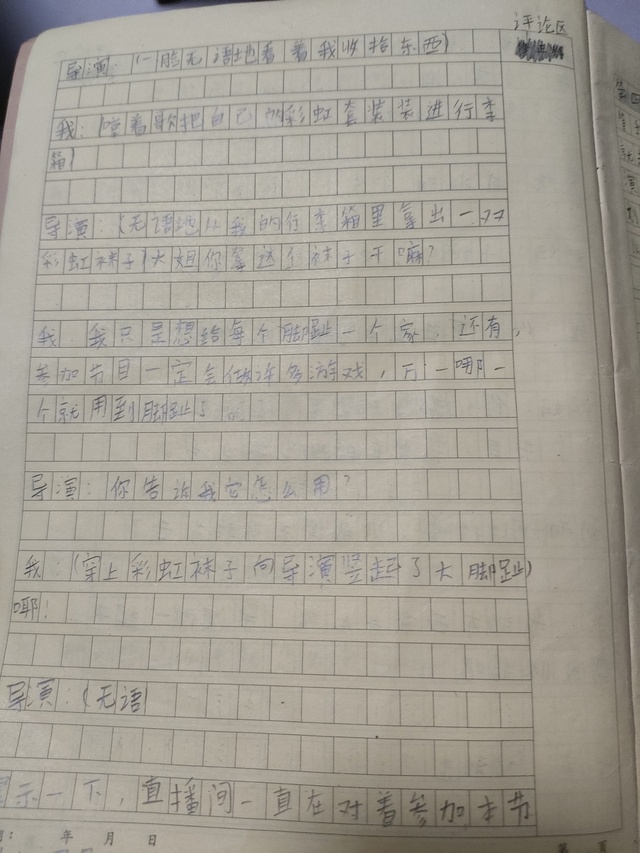 评论区
导演:(一脸无语地看着我收拾东西)
我:(哼着歌把自己的彩虹套装装进行李
箱)
导演:(无语地从我的行李箱里拿出一双
彩虹袜子)大姐你拿这个袜子干嘛?
我:我只是想给每个脚趾一个家,还有,
参加节目一定会做许多游戏,万一哪一
个就用到脚趾了。
导演:你告诉我它怎么用?
我:(穿上彩虹袜子向导演竖起了大脚趾)
耶!
导演:(无语
示一下,直播间一直在对着参加本节
年 月 日
第 页